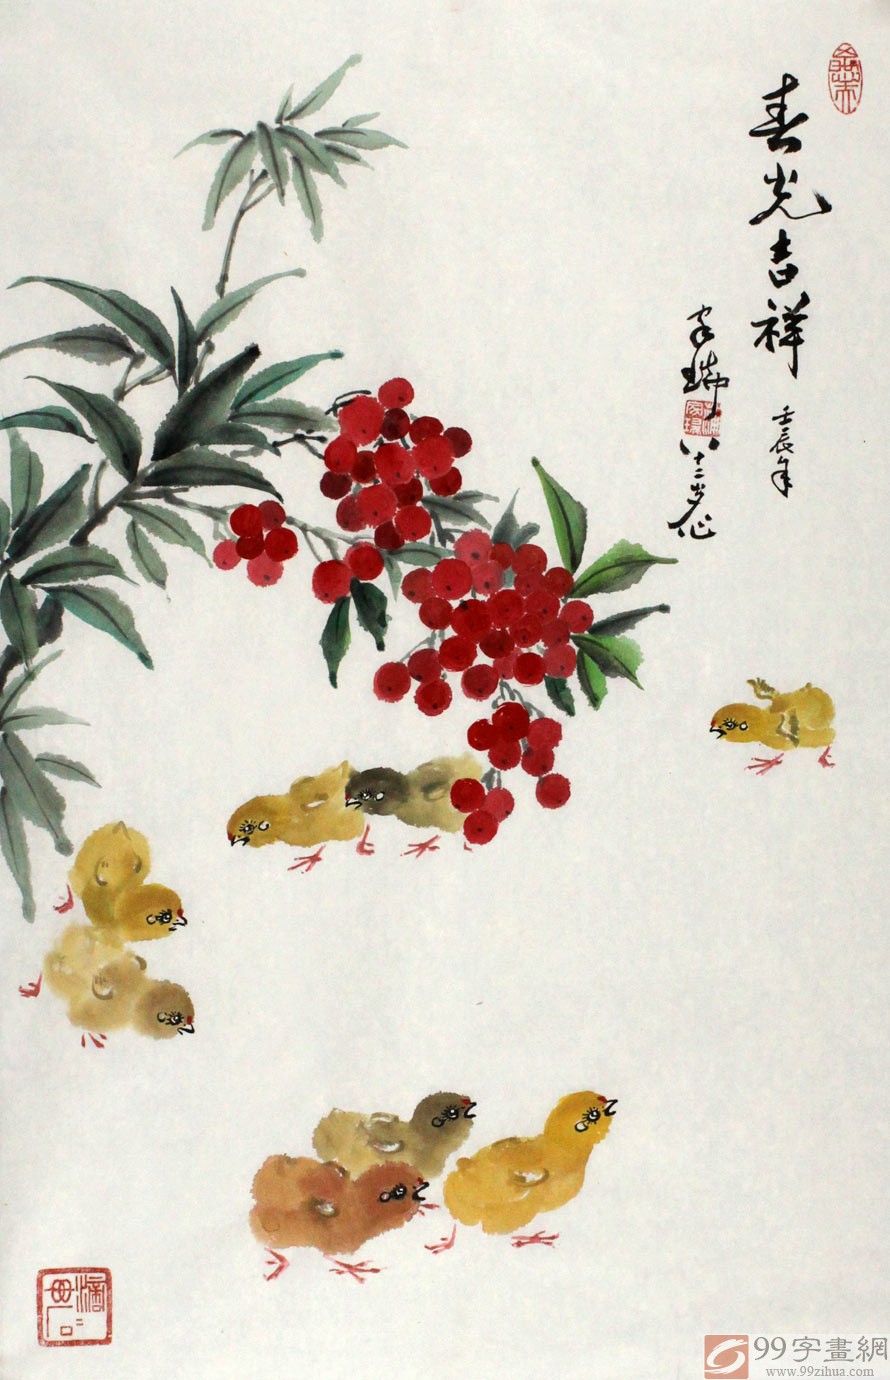 春光吉祥
壬辰年
家瑞
八十二岁作
99字畫網
www.99zihua.com